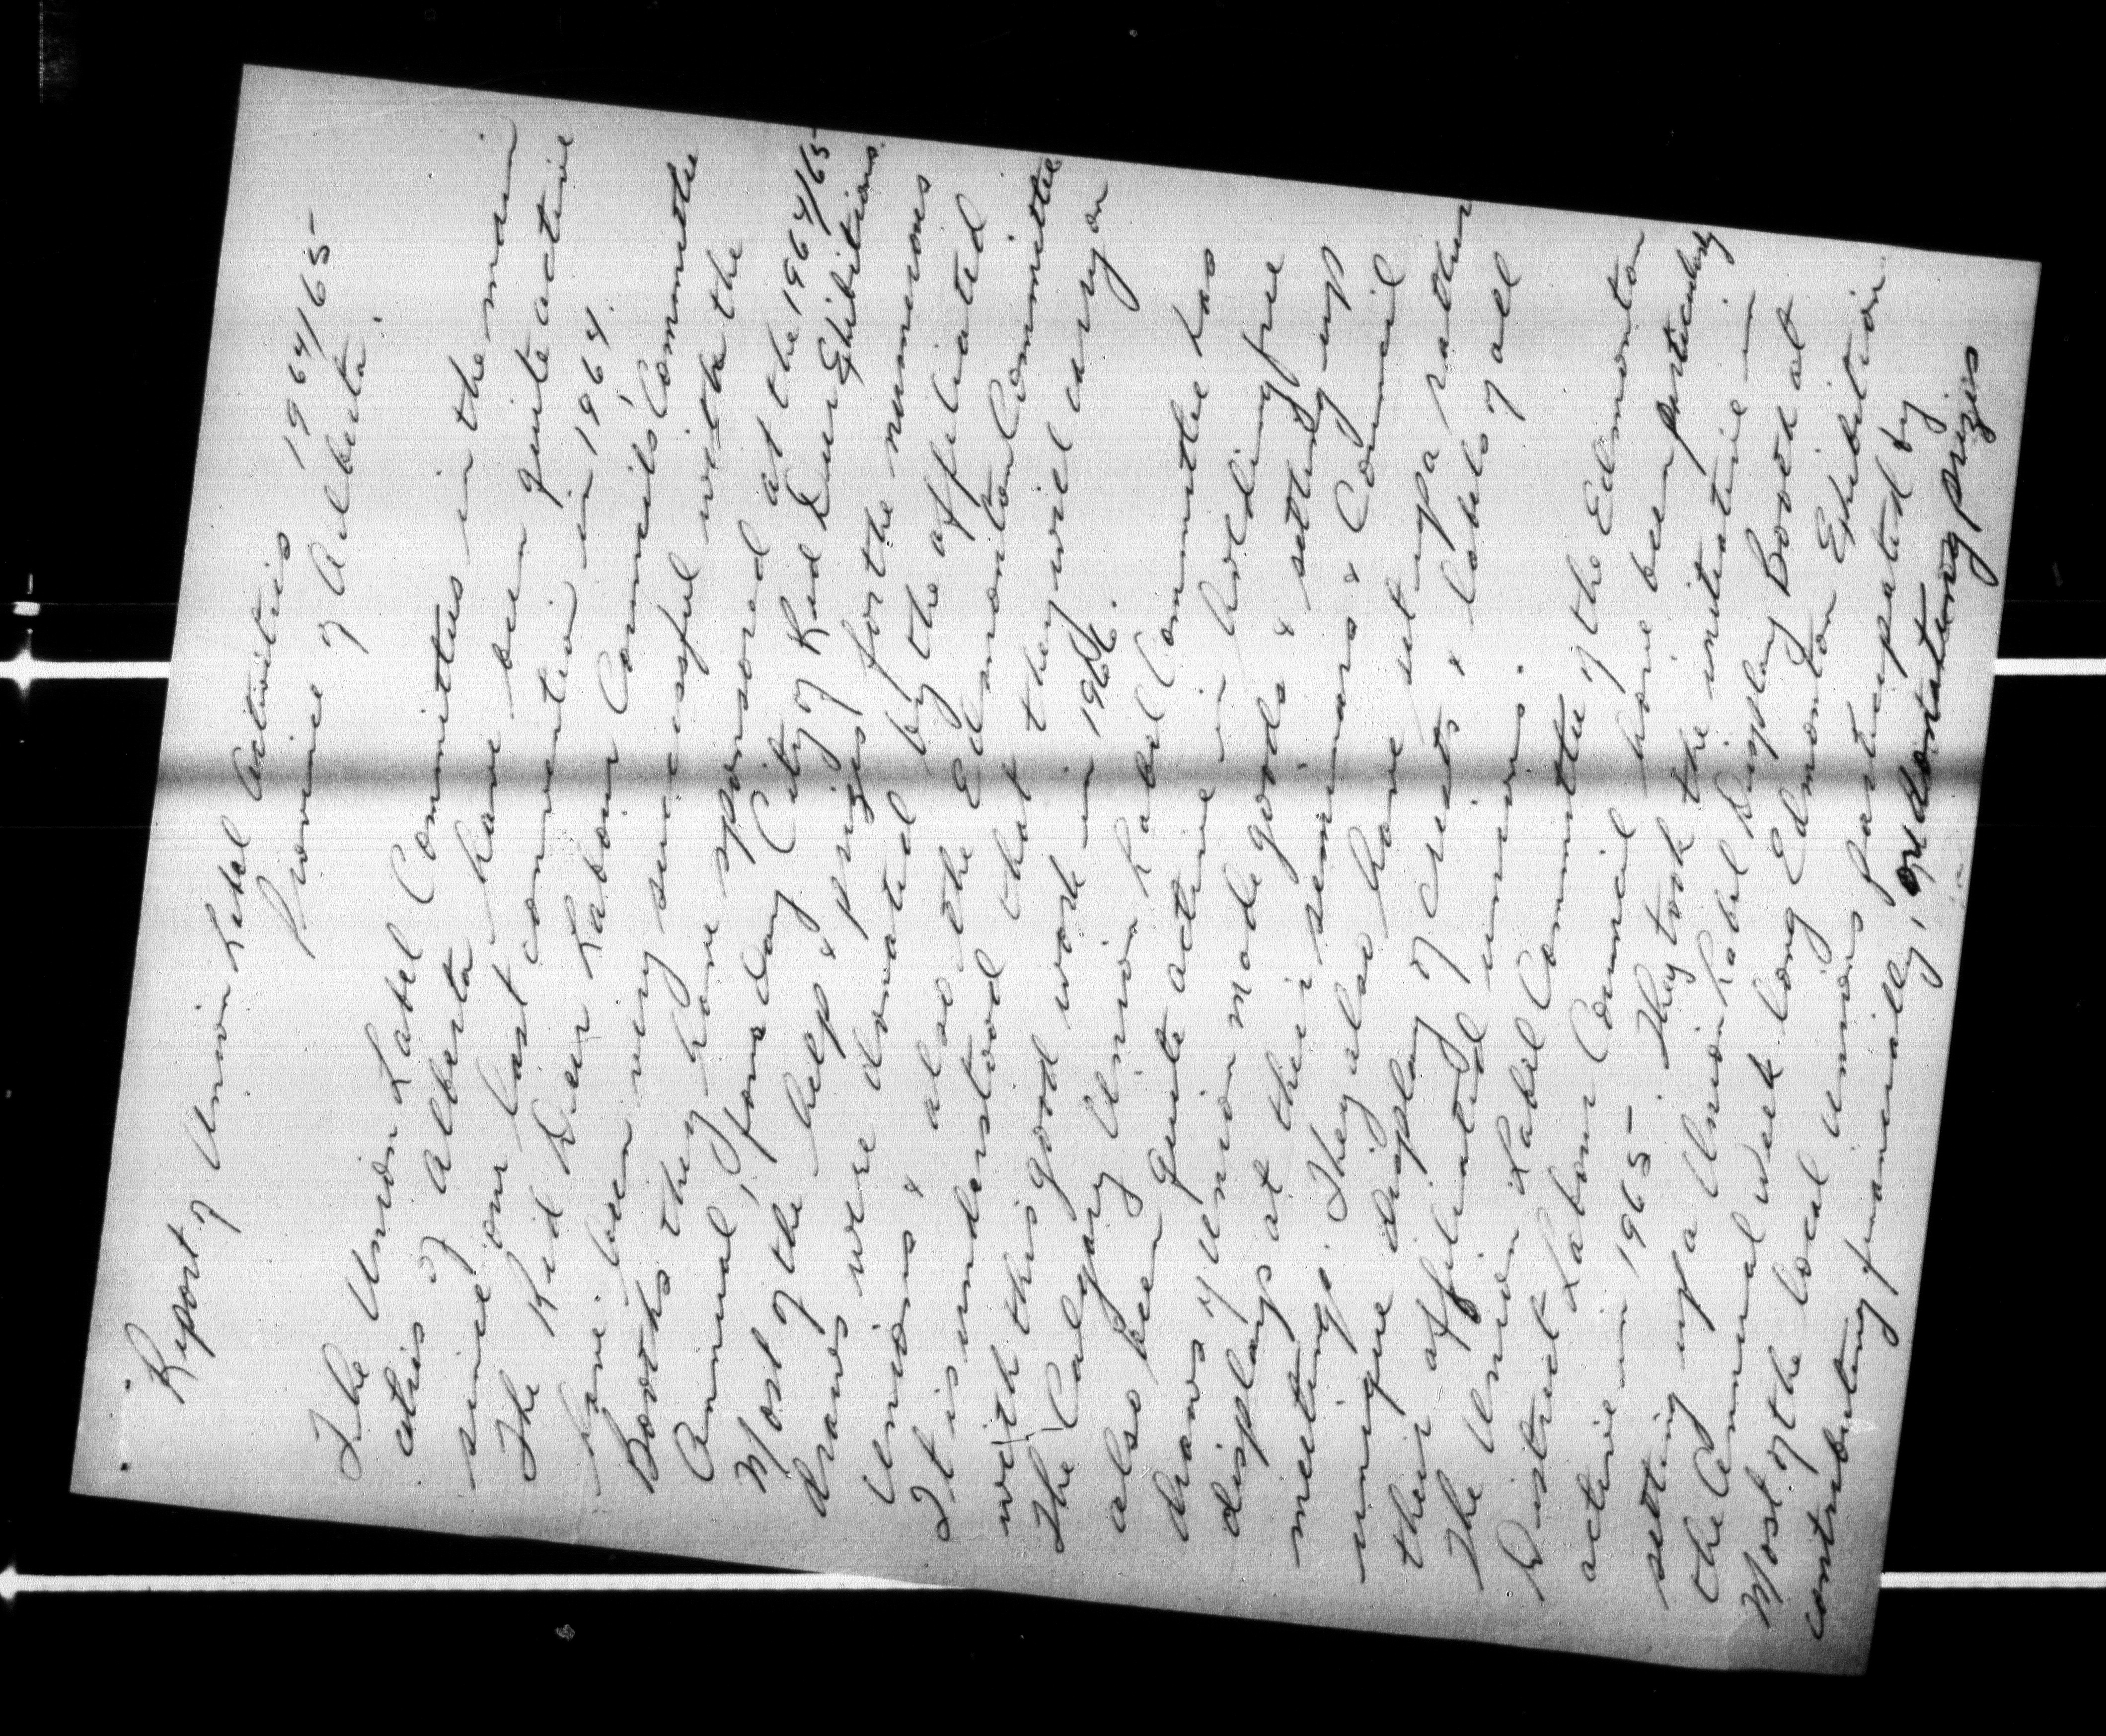 Report of Union Label Activities 1964/65
Province of Alberta.
The Union Label Committees in the main
cities of Alberta have been quite active
since our last convention in 1964.
The Red Deer Labour Council's Committee
have been very successful with the
Booths they have sponsored at the 1964/65
Annual, four day City of Red Deer Exhibitions.
Most of the help & prizes for the numerous
draws were donated by the affiliated
Unions & also the Edmonton Committee
It is understood that they will carry on
with this good work in 1966.
The Calgary Union Label Committee has
also been quite active in holding free
draws of Union made goods & setting up
displays at their seminars & Council
meetings. They also have set up a rather
unique display of crests & labels of all
their affiliated unions.
The Union Label Committee of the Edmonton
District Labour Council have been particularly
active in 1965. They took the initiative in
setting up a Union Label Display Booth at
the Annual Week long Edmonton Exhibition.
Most of the local Unions participated by
contributing financially, or donating prizes